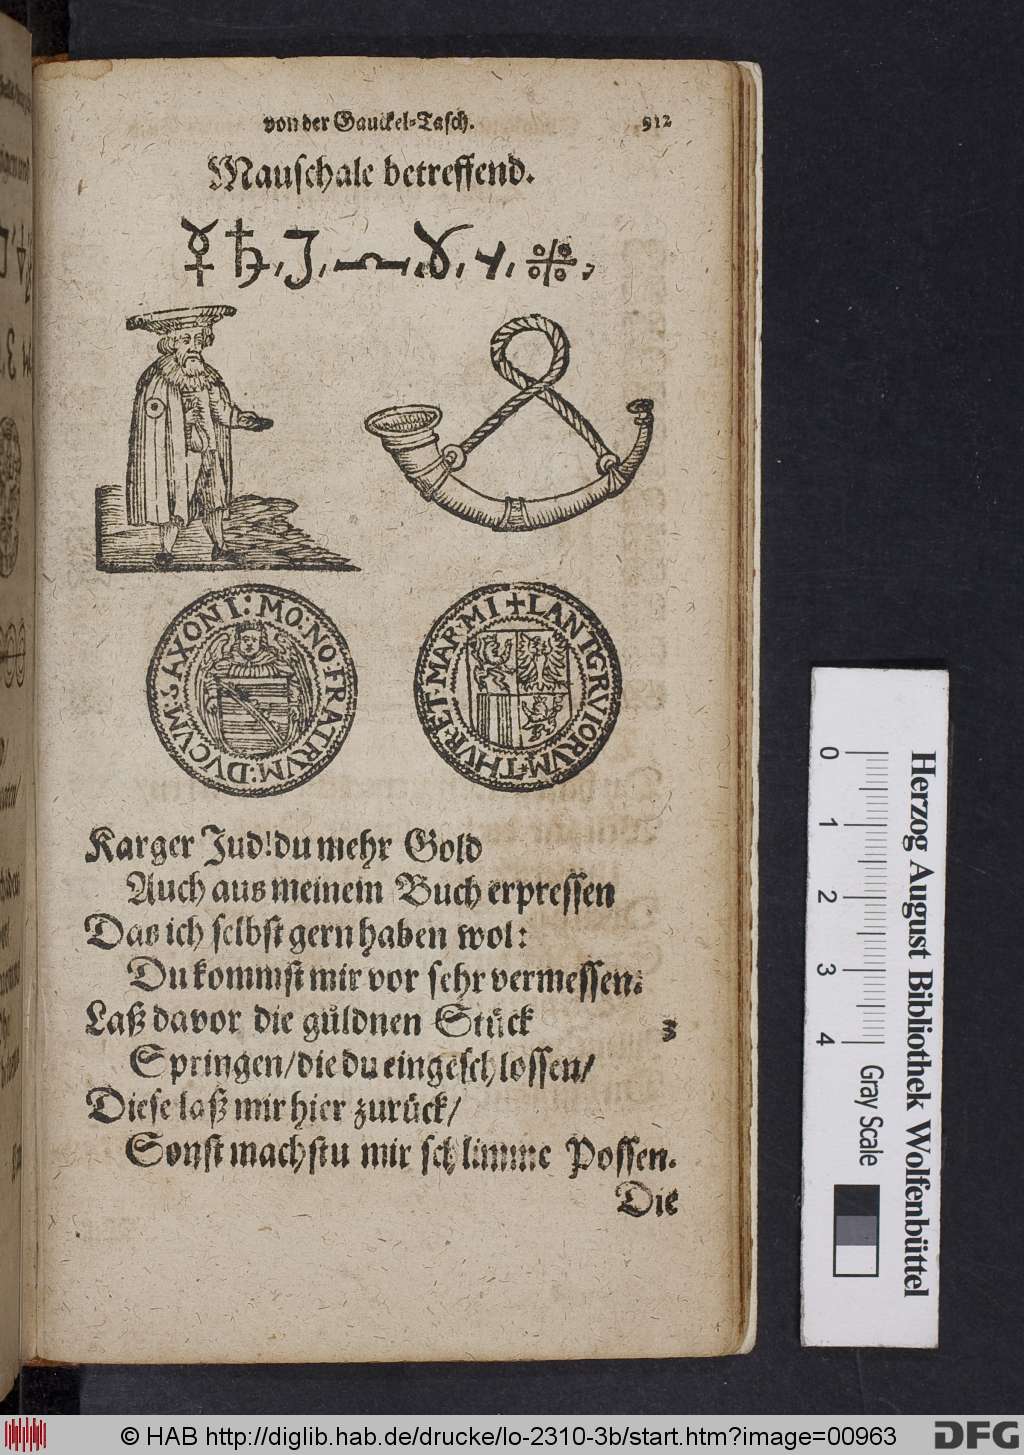 von der Gauckel-Tasch. 912
Mauschale betreffend.
☿ ♄
MO: NO: FRATRVM: DVCVM: SAXONI:
✝ LANTGRVIORVM * THVR: ET: MAR: MI
Karger Jud! du mehr Gold
Auch aus meinem Buch erpressen
Das ich selbst gern haben wol:
Du kommst mir vor sehr vermessen:
Laß davor die güldnen Stück 3
Springen/ die du eingeschlossen/
Diese laß mir hier zurück/
Sonst machstu mir schlimme Possen.
Die
0 1 2 3 4
Herzog August Bibliothek Wolfenbüttel
Gray Scale
© HAB http://diglib.hab.de/drucke/lo-2310-3b/start.htm?image=00963
DFG